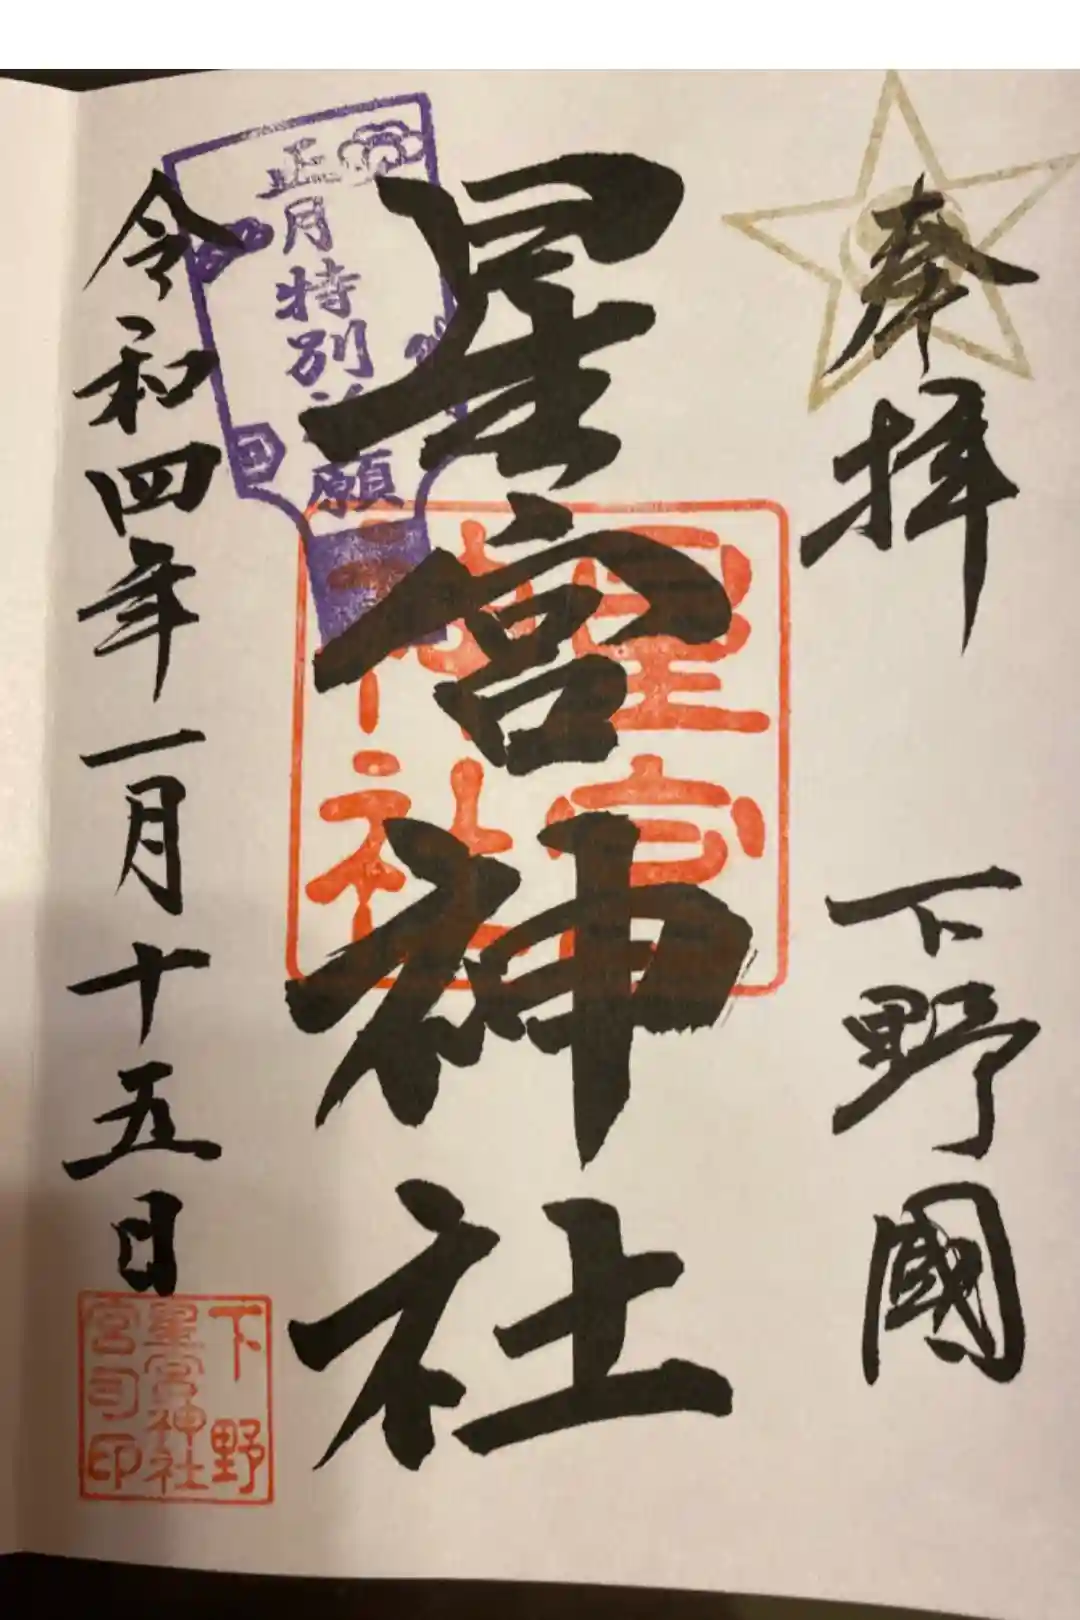 奉拝
下野國
星宮神社
星宮
神社
正月特別祈願
令和四年一月十五日
下野
星宮神社
宮司印